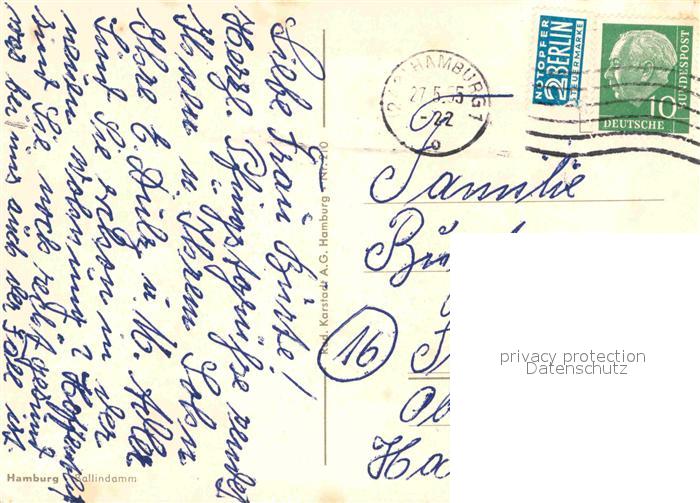 Liebe Frau Bürke!
Herzl. Pfingstgrüße sendet
Ihnen u. Ihrem Sohn
Ihre E. u. M.
Sind Sie schon in der
neuen Wohnung? Hoffentlich
sind Sie noch recht gesund
was bei uns auch der Fall ist.
Hamburg Ballindamm
Rud. Karstadt A.G. Hamburg Nr. 210
HAMBURG 1
27.5.55
-22
o
NOTOPFER
2 BERLIN
STEUERMARKE
10
DEUTSCHE
BUNDESPOST
Familie
16
privacy protection
Datenschutz